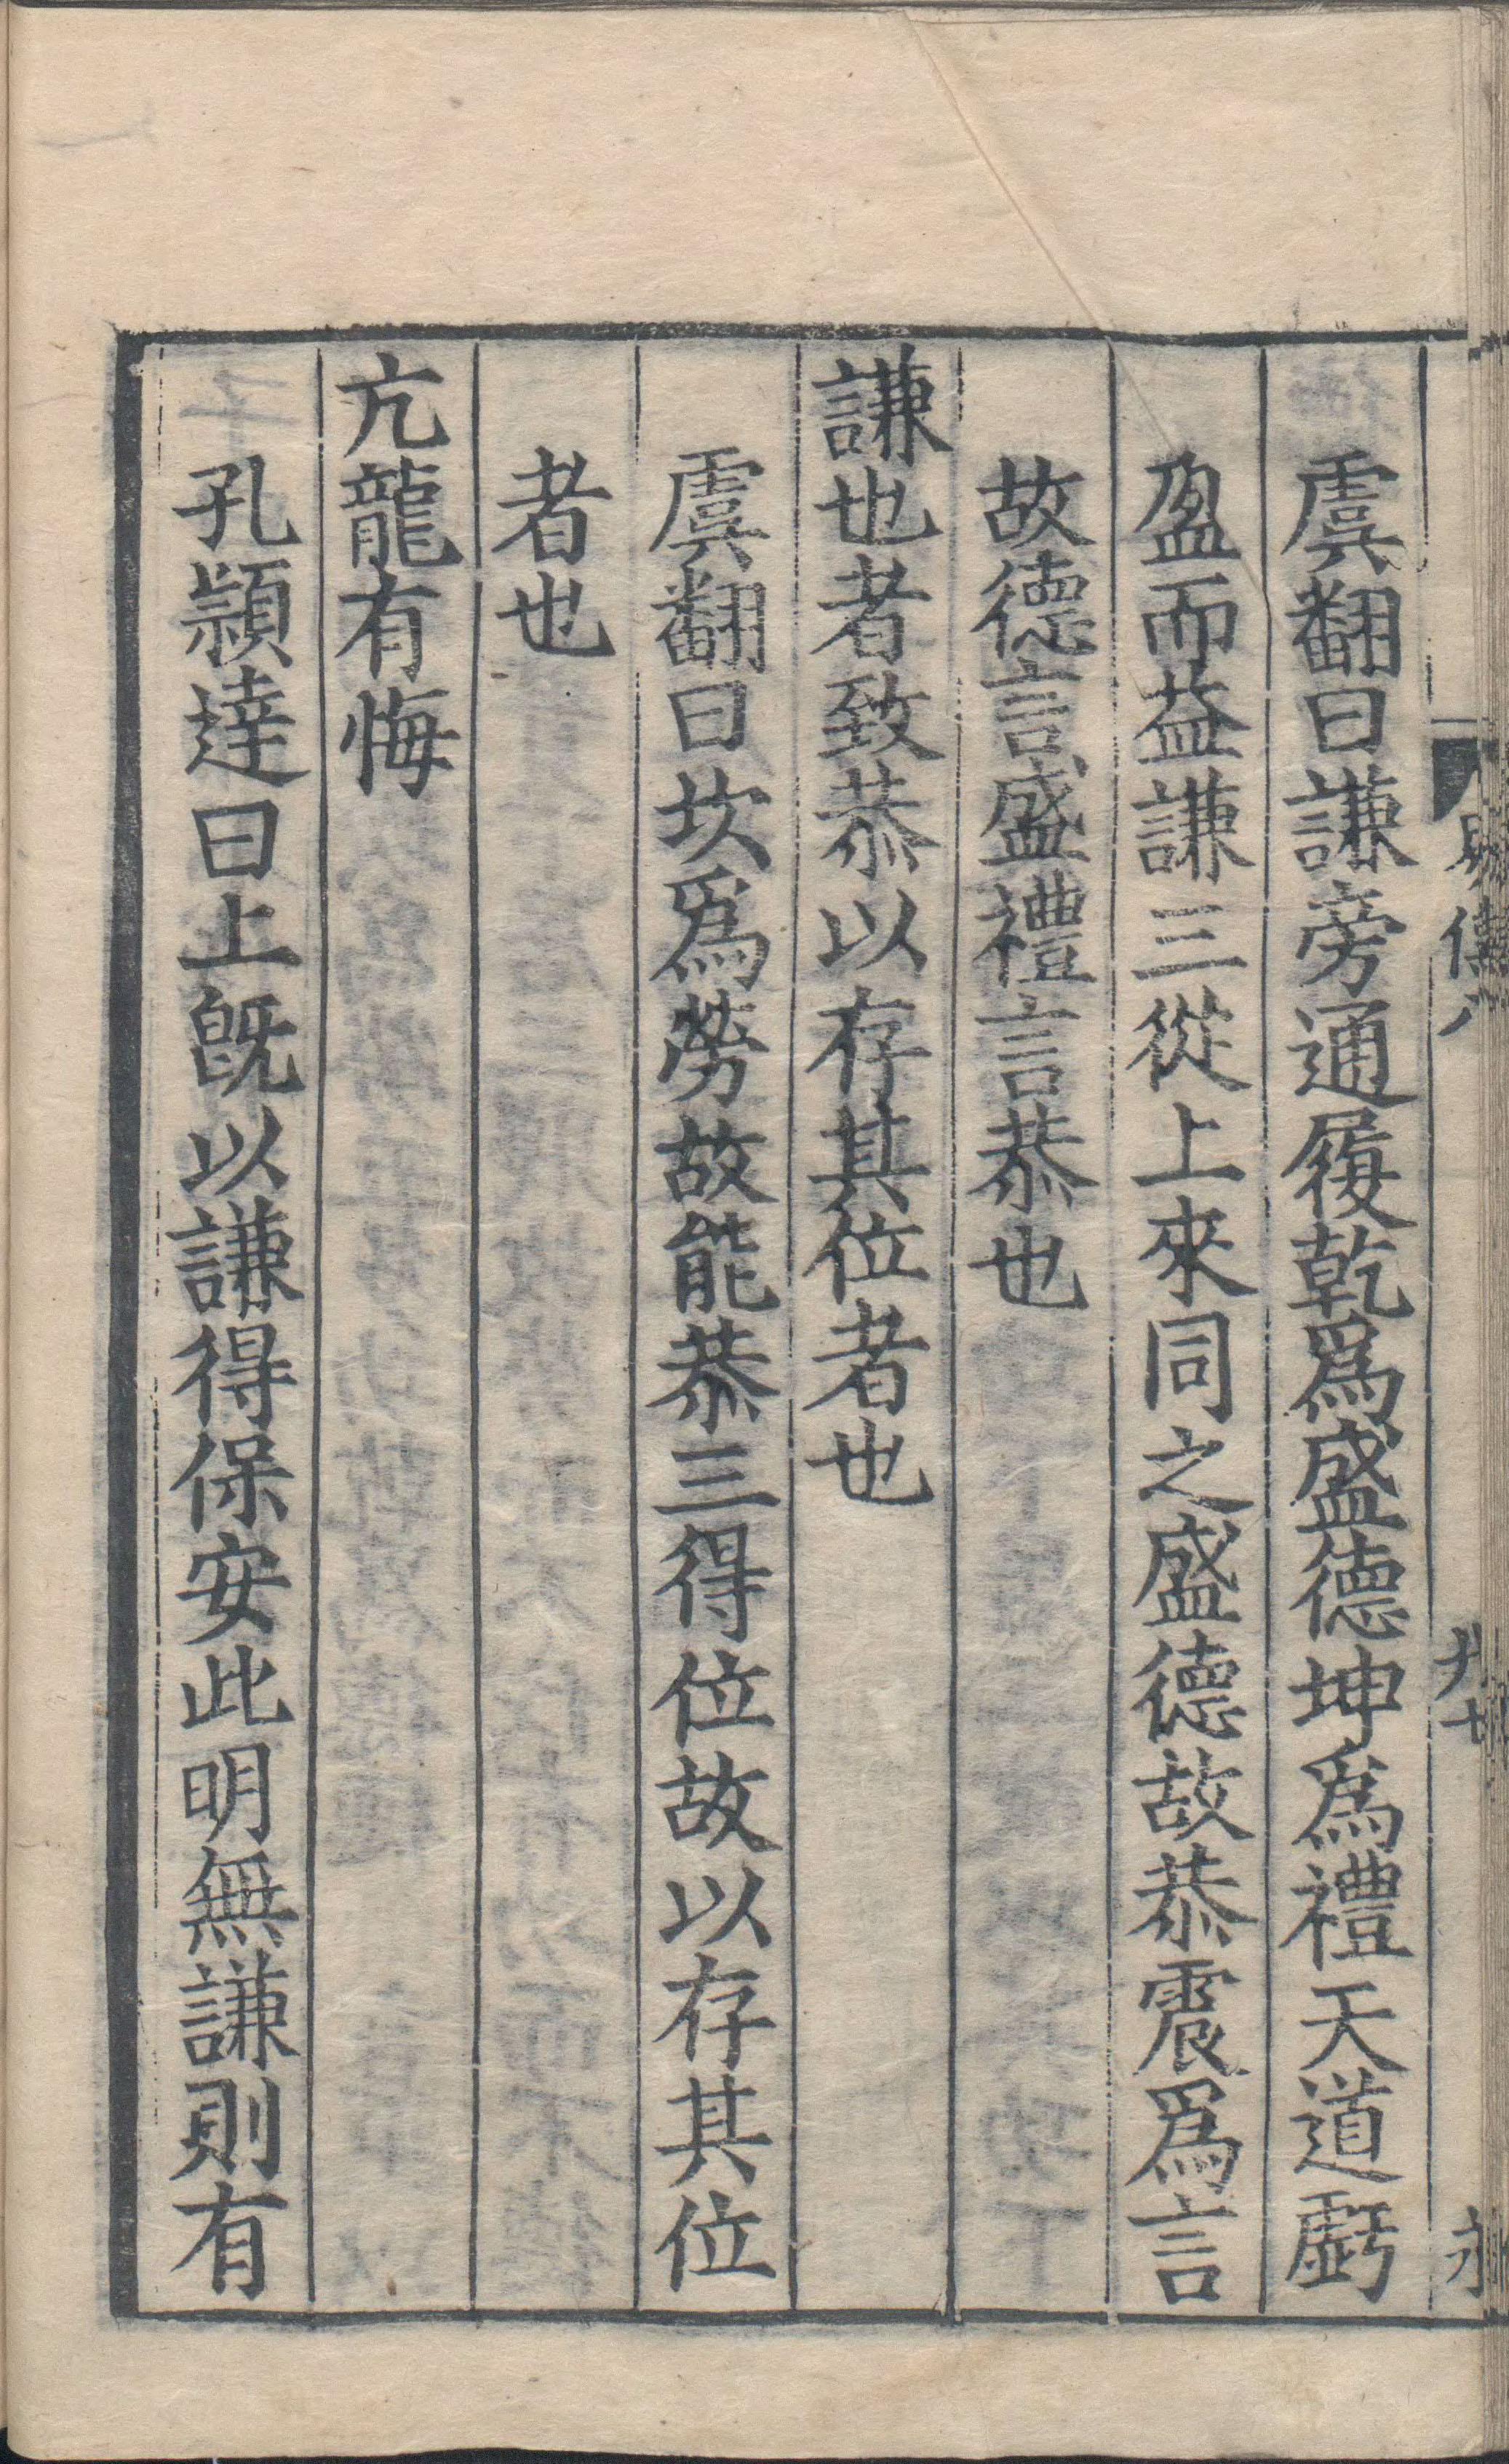 虞翻曰謙旁通履乾爲盛德坤爲禮天道虧
盈而益謙三從上來同之盛德故恭震爲言
故德言盛禮言恭也
謙也者致恭以存其位者也
虞翻曰坎爲勞故能恭三得位故以存其位
者也
亢龍有悔
孔頴逹曰上旣以謙得保安此明無謙則有